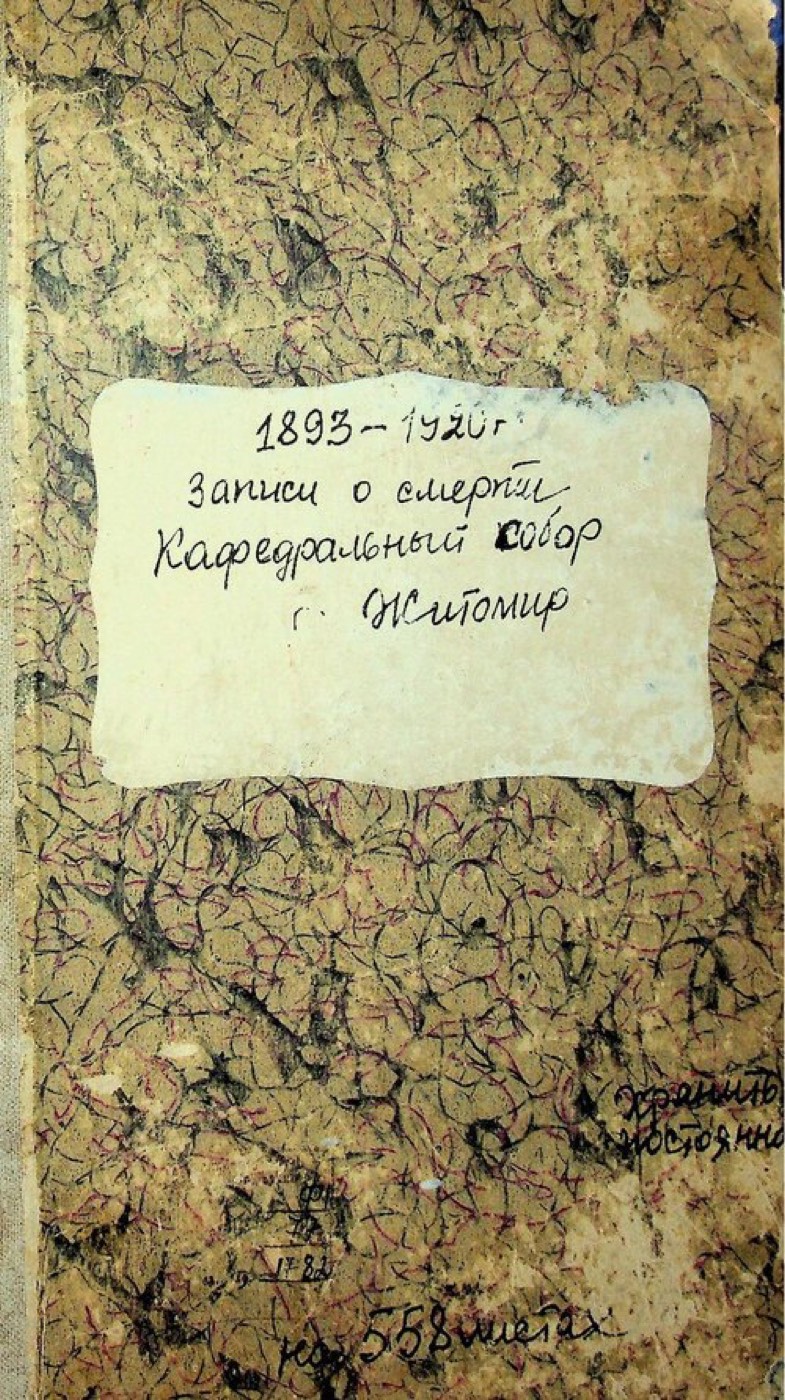 1893 – 1920 г
Записи о смерти
Кафедральный собор
г. Житомир
Хранить
постоянно
1782
на 558 листах